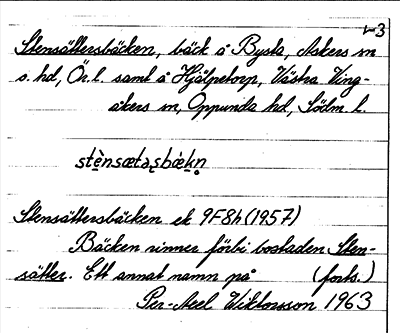 1-3
Stensättersbäcken, bäck å Bysta, Askers sn
o. hd, Ör. l. samt å Hjälpetorp, Västra Ving-
åkers sn, Oppunda hd, Södm. l.
Stensättersbäcken ek 9F8h (1957)
Bäcken rinner förbi bostaden Sten-
sätter. Ett annat namn på (forts.)
Per-Axel Wiktorsson 1963